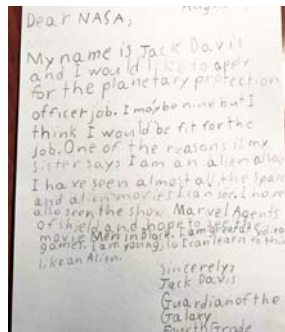 Dear NASA,
My name is Jack Davis
and I would like to apply
for the planetary protection
officer job. I may be nine but I
think I would be fit for the
job. One of the reasons is my
sister says I am an alien also
I have seen almost all the space
and alien movies I can see. I have
also seen the show Marvel Agents
of Shield and hope to see the
movie Men in Black. I am great
games. I am young, so I can learn to think
like an Alien.
Sincerely,
Jack Davis
Guardian of the
Galaxy
Fourth Grade